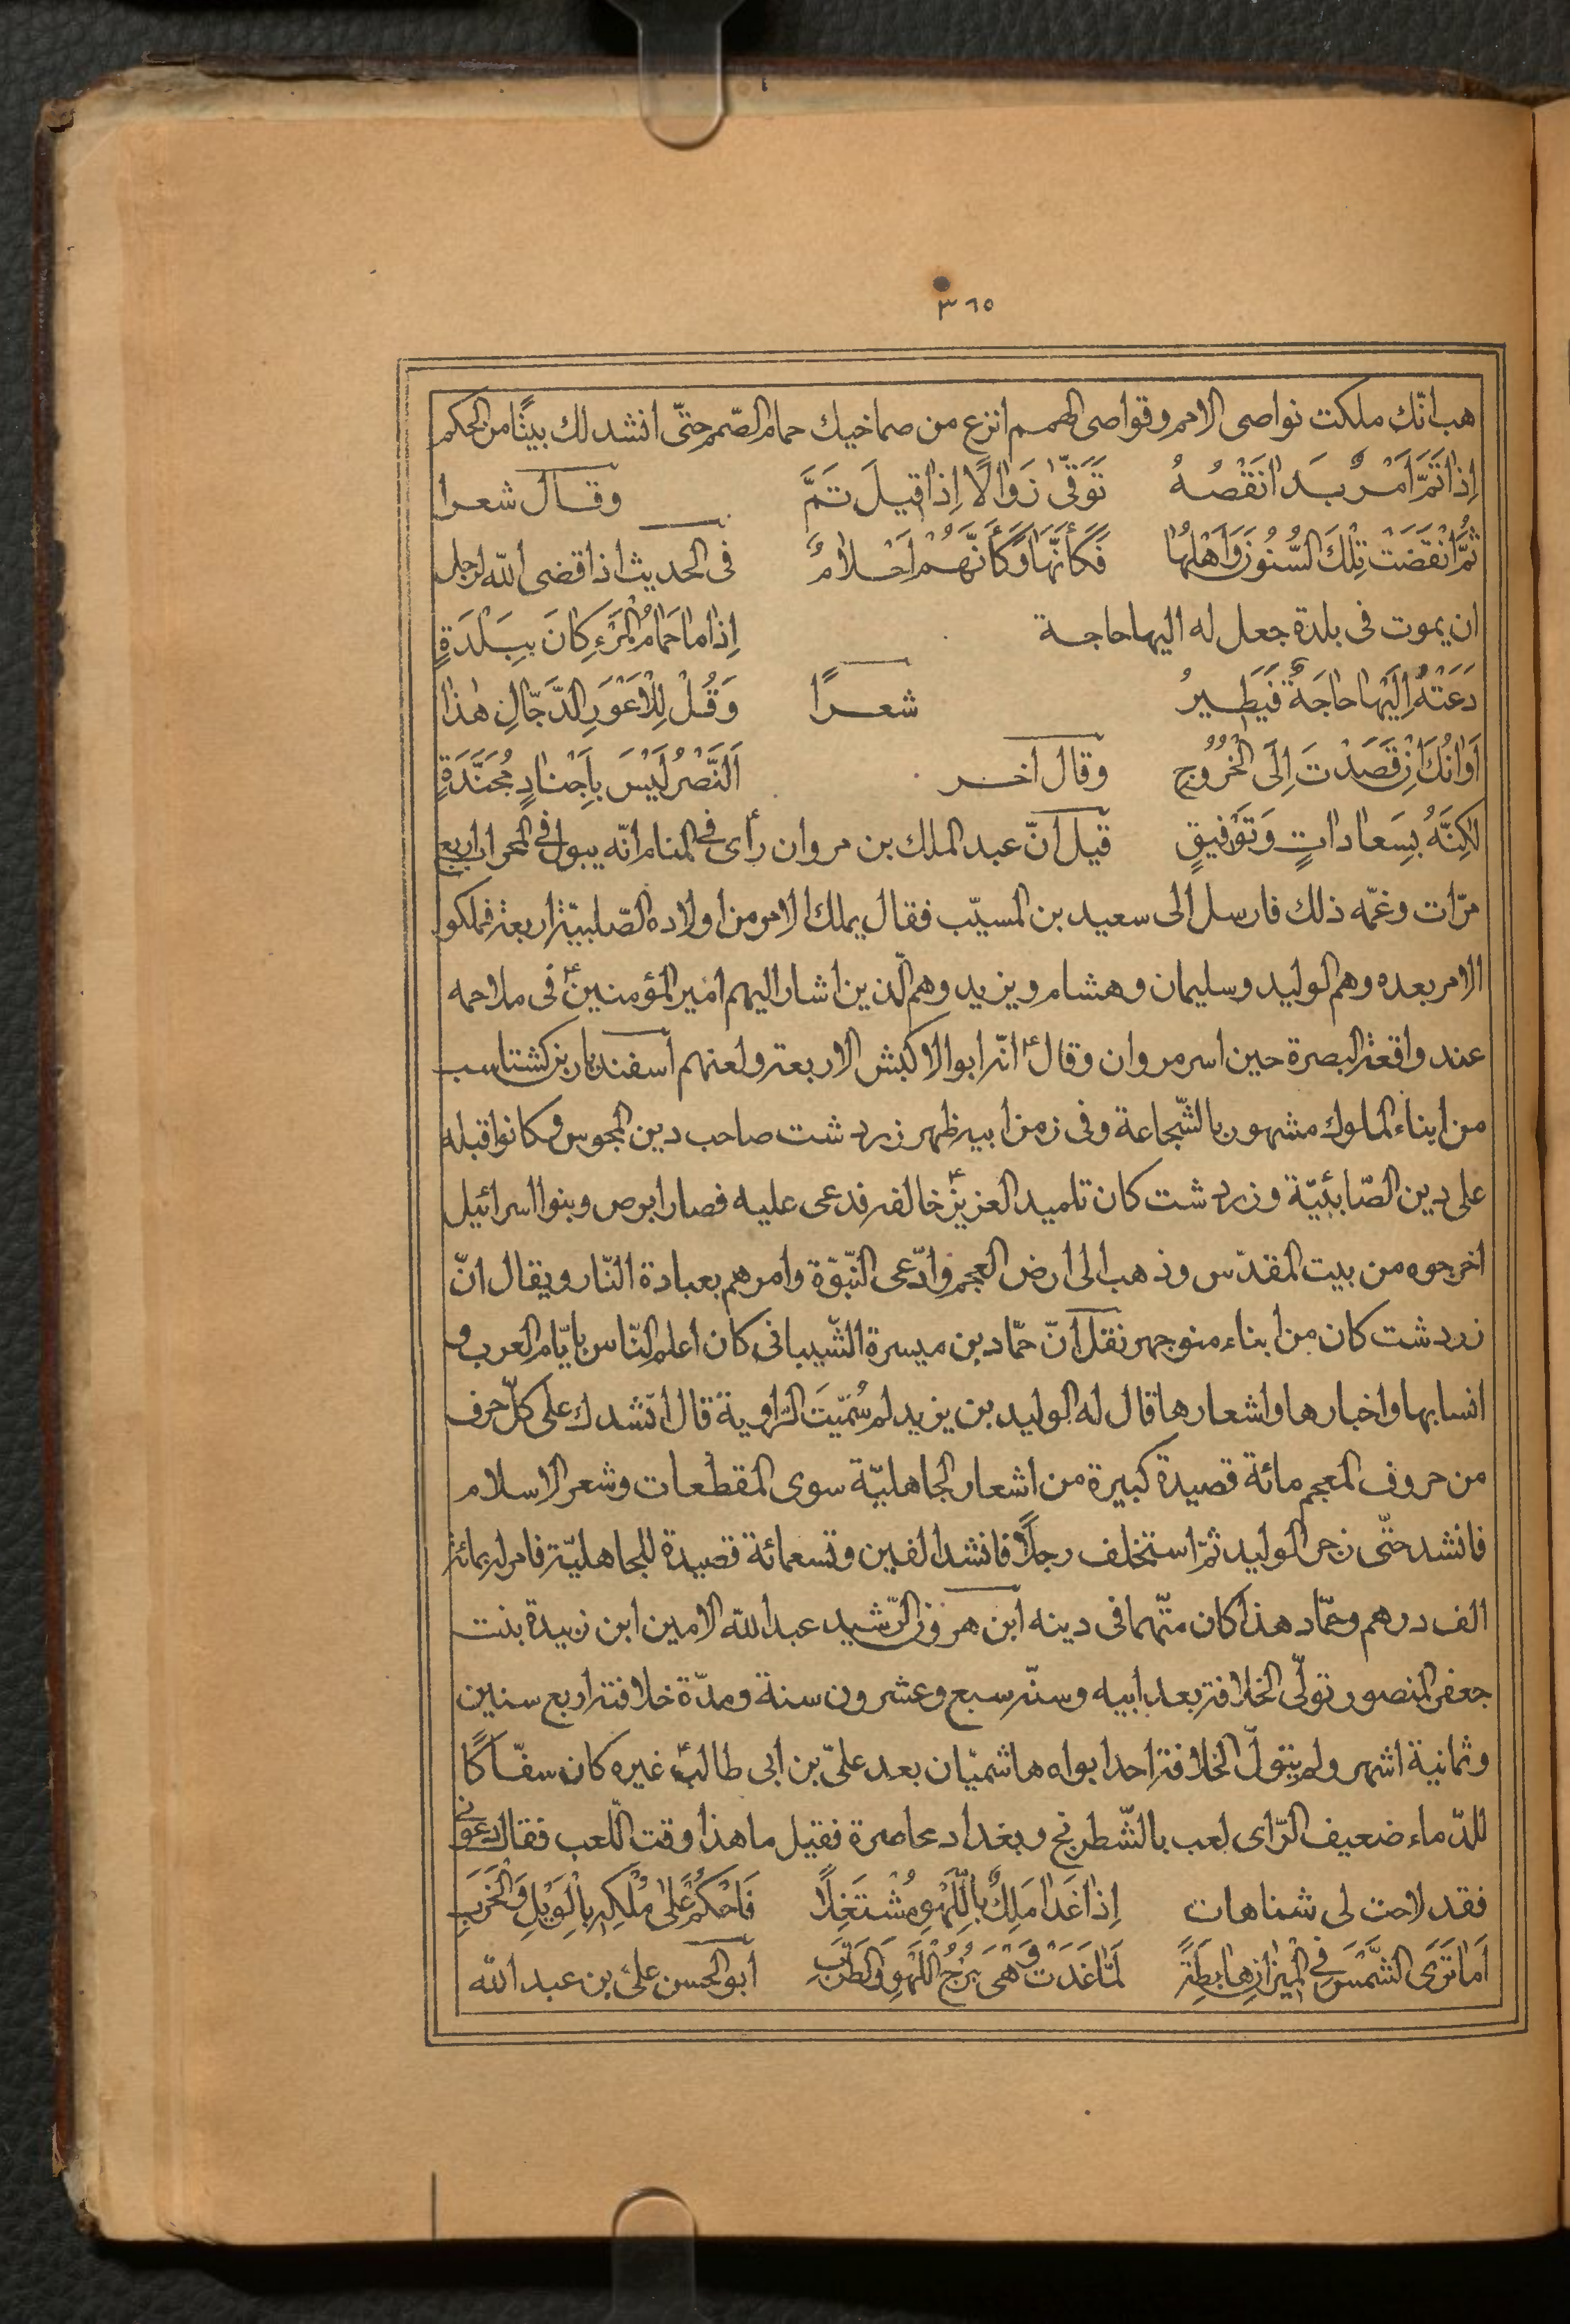 ٣٦٥
هب انّك ملكت نواصى الامم وقواصى الهمم انزع من صماخيك حمام الصّمم حتّى انشد لك بيتًا من الحكم
إِذا تَمَّ اَمْرٌ بَدا نَقْصُهُ تَوَقّىٰ زَوالًا اِذا قِيلَ تَمَّ وقال شعرا
ثُمَّ انْقَضَتْ تِلْكَ السُّنُونَ وَاَهْلُها فَكَأَنَّها وَكَأَنَّهُمْ اَحْلامٌ فى الحديث اذا قضى اللّه لرجل
ان يموت فى بلدة جعل له اليها حاجة إِذا ما حَمامُ الْمَرْءِ كانَ بِبَلْدَةٍ
دَعَتْهُ اِلَيْها حاجَةٌ فَيَطِيرُ شعرًا وَقُلْ لِلْاَعْوَرِ الدَّجّالِ هٰذا
اَوانُكَ اِنْ قَصَدْتَ اِلَى الْخُرُوجِ وقال اخر اَلنَّصْرُ لَيْسَ بِاَجْنادٍ مُجَنَّدَةٍ
لٰكِنَّهُ بِسَعاداتٍ وَتَوْفيقٍ قيل انّ عبد الملك بن مروان رأى فى المنام انّه يبول فى المحراب اربع
مرّات وغمّه ذلك فارسل الى سعيد بن المسيّب فقال يملك الامر من اولاده الصّلبيّة اربعة فملكوا
الامر بعده وهم الوليد وسليمان وهشام ويزيد وهم الّذين اشار اليهم امير المؤمنينؑ فى ملاحمه
عند واقعة البصرة حين اسر مروان وقالؑ انّه ابو الاكبش الاربعة ولعنهم اسفنديار بن كشتاسب
من ابناء الملوك مشهور بالشّجاعة وفى زمن ابيه ظهر زردشت صاحب دين المجوس وكانوا قبله
على دين الصّابئيّة وزردشت كان تلميد العزيزؑ خالفه فدعى عليه فصار ابرص وبنوا اسرائيل
اخرجوه من بيت المقدّس وذهب الى ارض العجم وادّعى النّبوّة وامرهم بعبادة النّار ويقال انّ
زردشت كان من ابناء منوجهر نقل انّ حمّاد بن ميسرة الشّيبانى كان اعلم النّاس بايّام العرب و
انسابها واخبارها واشعارها قال له الوليد بن يزيد لم سُمّيتَ الرّاوية قال انشدك على كلّ حرف
من حروف المعجم مائة قصيدة كبيرة من اشعار الجاهليّة سوى المقطعات وشعر الاسلام
فانشد حتّى زجر الوليد ثمّ استخلف رجلًا فانشد الفين وتسعمائة قصيدة للجاهليّة فامر له بمائة
الف درهم وحمّاد هذا كان متّهما فى دينه ابن هرون الرّشيد عبد اللّه الامين ابن زبيدة بنت
جعفر المنصور تولّى الخلافة بعد ابيه وسنّه سبع وعشرون سنة ومدّة خلافته اربع سنين
وثمانية اشهر ولم يتولّ الخلافة احد ابواه هاشميّان بعد علىّ بن ابى طالبؑ غيره كان سفّاكًا
للدّماء ضعيف الرّاى لعب بالشّطرنج وبغداد محاصرة فقيل ما هذا وقت اللّعب فقال دعونى
فقد لاحت لى شاهات إِذا غَدا مَلِكٌ بِاللَّهْوِ مُشْتَغِلًا فَاحْكُمْ عَلىٰ مُلْكِهِ بِالْوَيْلِ وَالْخَرَبِ
اَما تَرَى الشَّمْسَ فِى الْميزانِ هابِطَةً لَمّا غَدَتْ وَهْىَ بُرْجُ اللَّهْوِ وَالطَّرَبِ ابو الحسن علىّ بن عبد اللّه